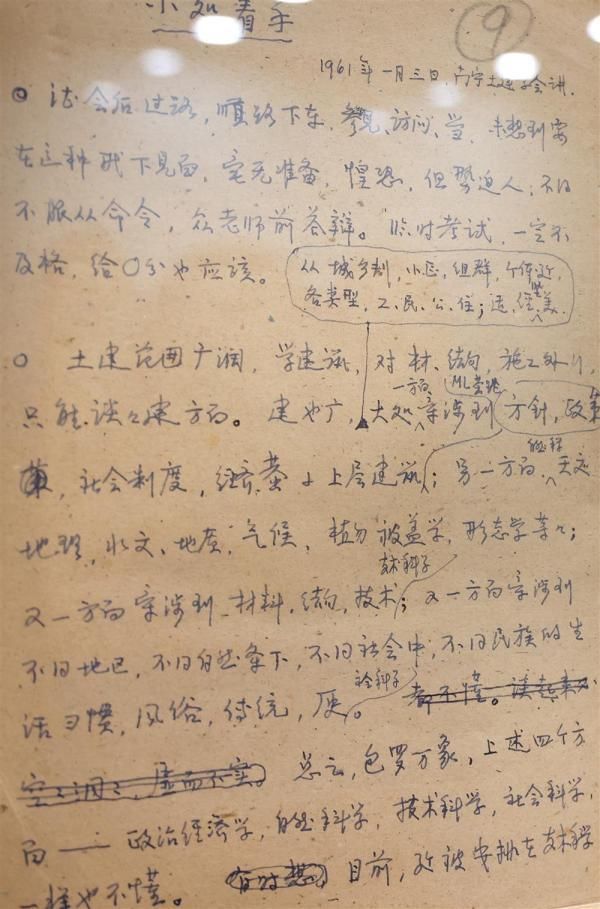 小处着手
9
1961年一月三日,南宁土建学会讲.
○ 法会后过路,顺路下车,参见,访问,学,未想到要
在这种 下见面,毫无准备,惶恐,但势迫人,不得
不服从命令,众老师前答辩。临时考试,一定不
及格,给○分也应该。
从城乡制,小区,组群,个体建,
各类型,工、民、公、住;适、经、坚、美
○ 土建范围广阔,学建筑,对材,结构,施工外行,
只能谈谈建方面。建也广,大处一方面牵涉到ML主义方针,政策
,社会制度,经济基于上层建筑;另一方面,自然科天文
地理,水文、地质,气候,植物被盖学,形态学等等;
又一方面牵涉到材料,结构,技术;技术科学又一方面牵涉到
不同地区,不同自然条下,不同社会中,不同民族的生
活习惯,风俗,传统,历史。社会科学 都不懂。谈起来
空空洞洞,虚而不实。总之,包罗万象,上述四个方
面——政治经济学,自然科学,技术科学,社会科学,
一样也不懂。有时想,目前,建被安排在技术科学